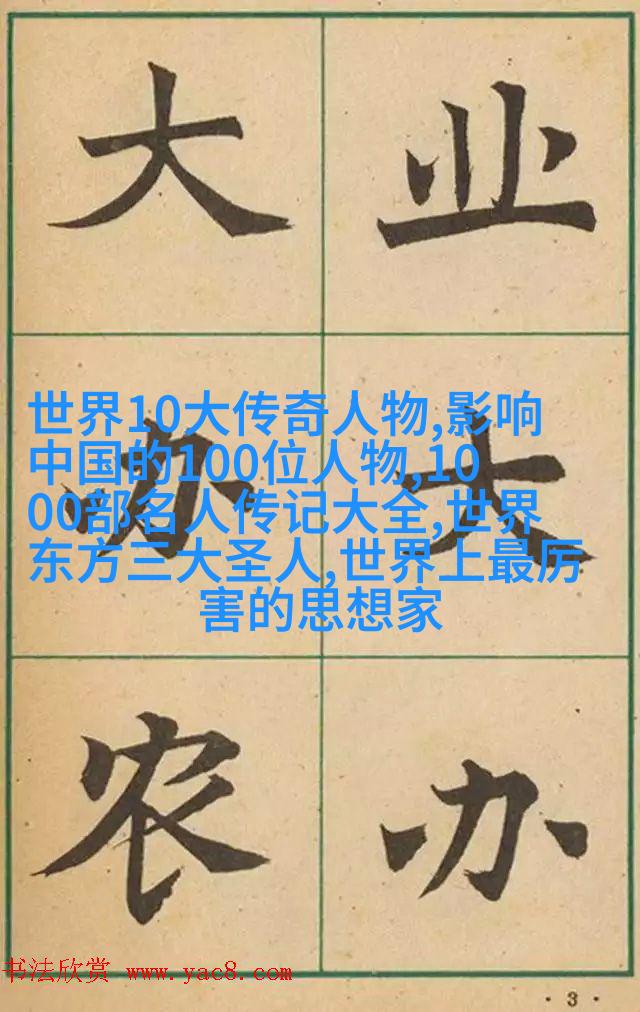 业大办
大办农
世界10大传奇人物,影响
中国的100位人物,10
00部名人传记大全,世界
东方三大圣人,世界上最厉
害的思想家
书法欣赏 www.yac8.com
·3·